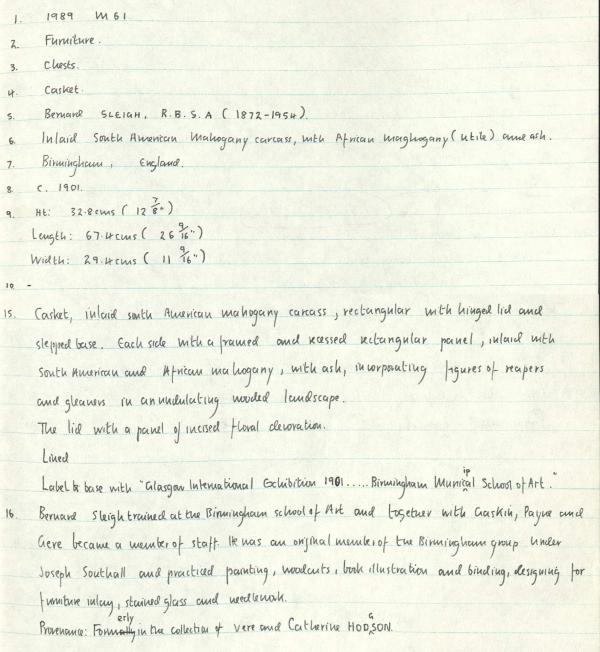 1. 1989 M61
2. Furniture.
3. Chests.
4. Casket.
5. Bernard SLEIGH, R.B.S.A (1872-1954).
6. Inlaid South American Mahogany carcass, with African maghogany (utile) and ash.
7. Birmingham, England.
8. c. 1901.
9. Ht: 32.8cms (12 7/8")
Length: 67.4cms (26 9/16")
Width: 29.4cms (11 9/16")
10 -
15. Casket, inlaid south American mahogany carcass, rectangular with hinged lid and
stepped base. Each side with a framed and recessed rectangular panel, inlaid with
South American and African mahogany, with ash, incorporating figures of reapers
and gleaners in an undulating wooded landscape.
The lid with a panel of incised floral decoration.
Lined
Label to base with "Glasgow International Exhibition 1901..... Birmingham Municipal School of Art."
16. Bernard Sleigh trained at the Birmingham school of Art and together with Gaskin, Payne and
Gere became a member of staff. He was an original member of the Birmingham group under
Joseph Southall and practiced painting, woodcuts, book illustration and binding, designing for
furniture inlay, stained glass and needlework.
Provenance: Formerly in the collection of Vere and Catherine HODGSON.